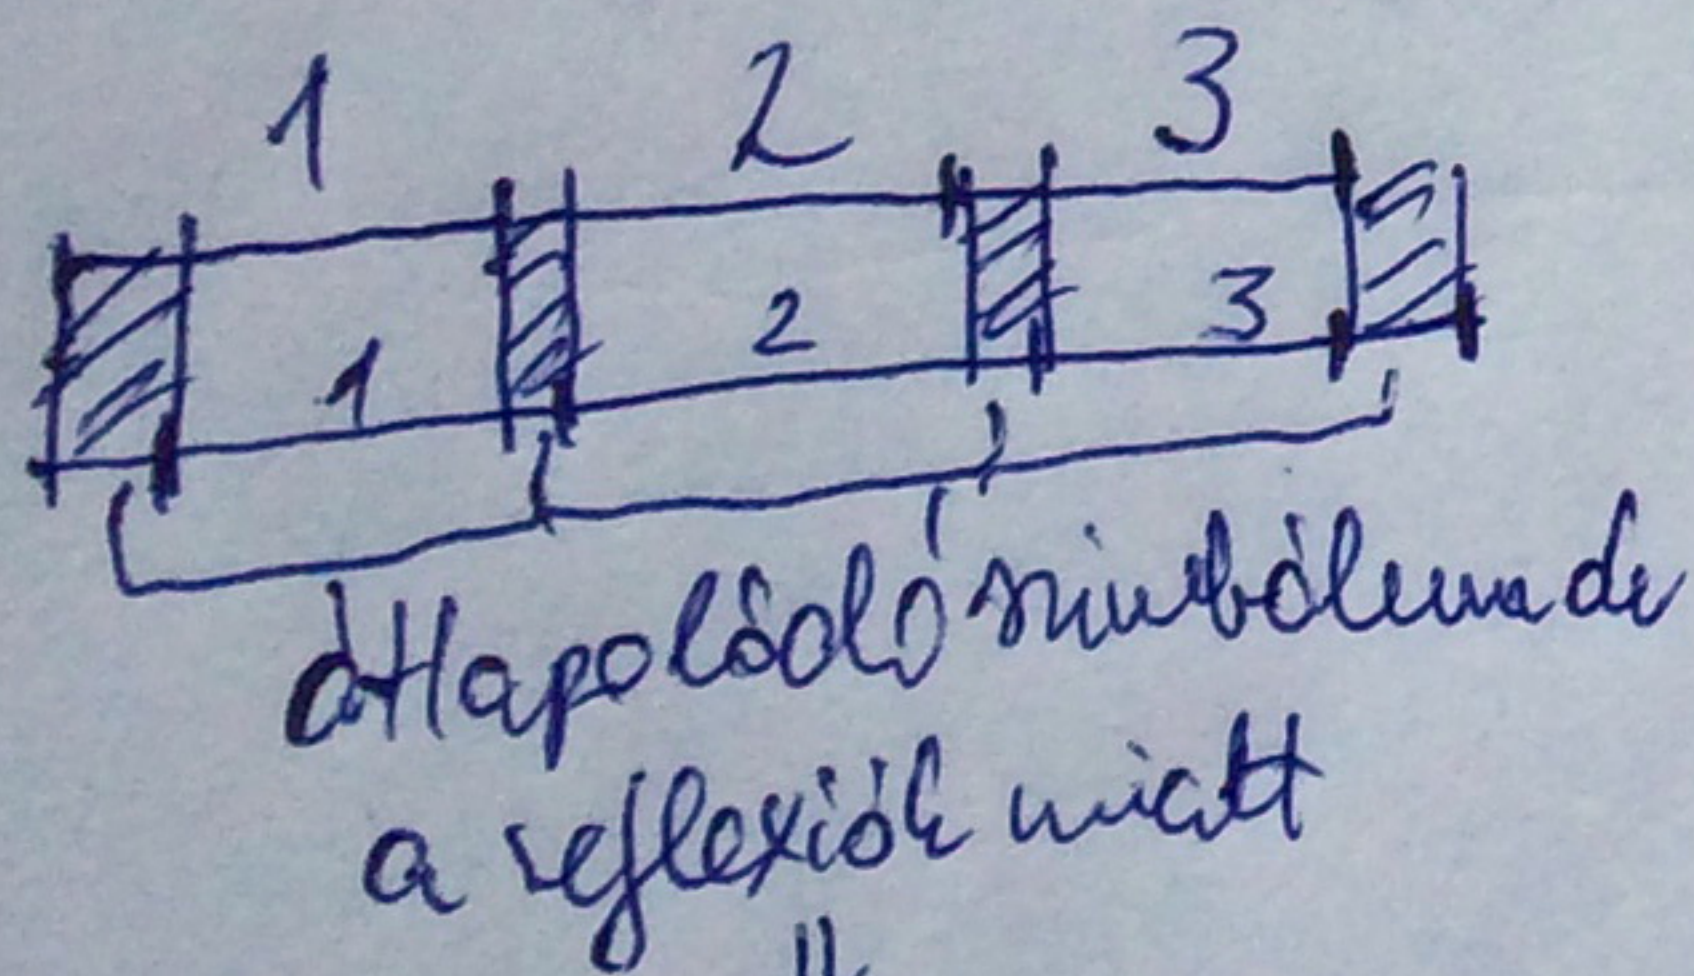 1 2 3
1 2 3
átlapolódó szimbólum de
a reflexiók miatt